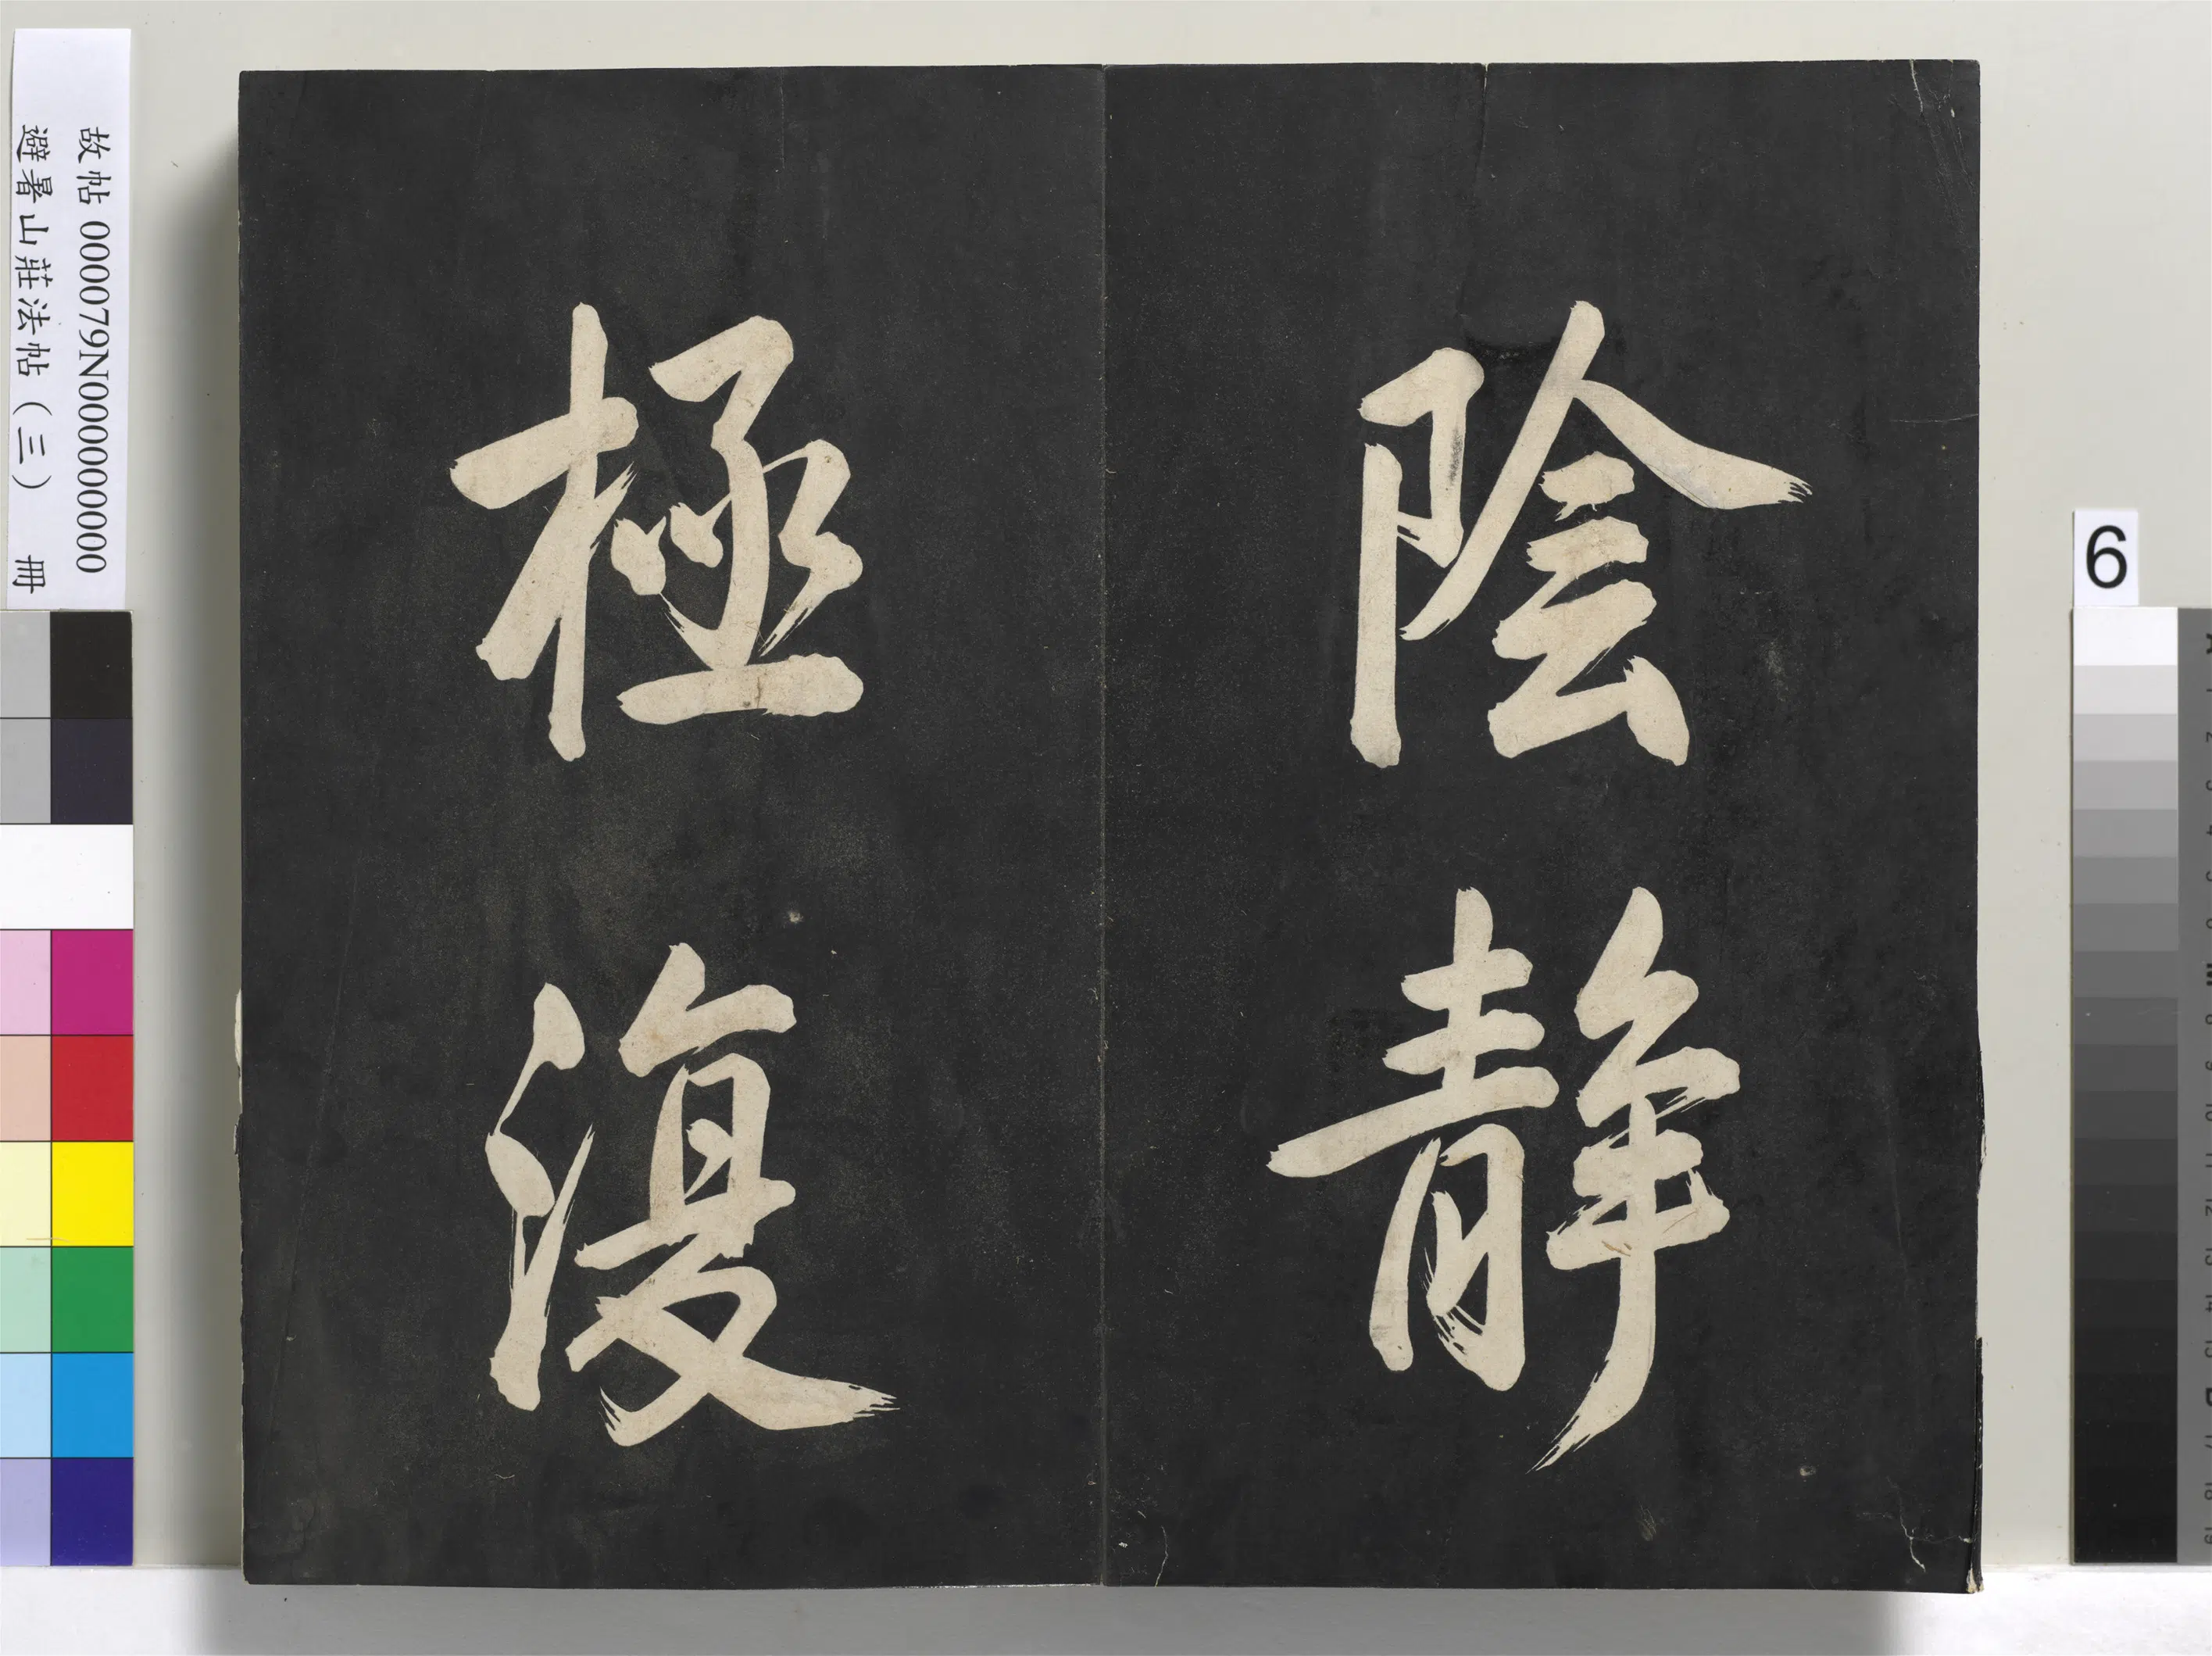 陰靜
極復
故帖 000079N000000000
避暑山莊法帖(三) 冊
6